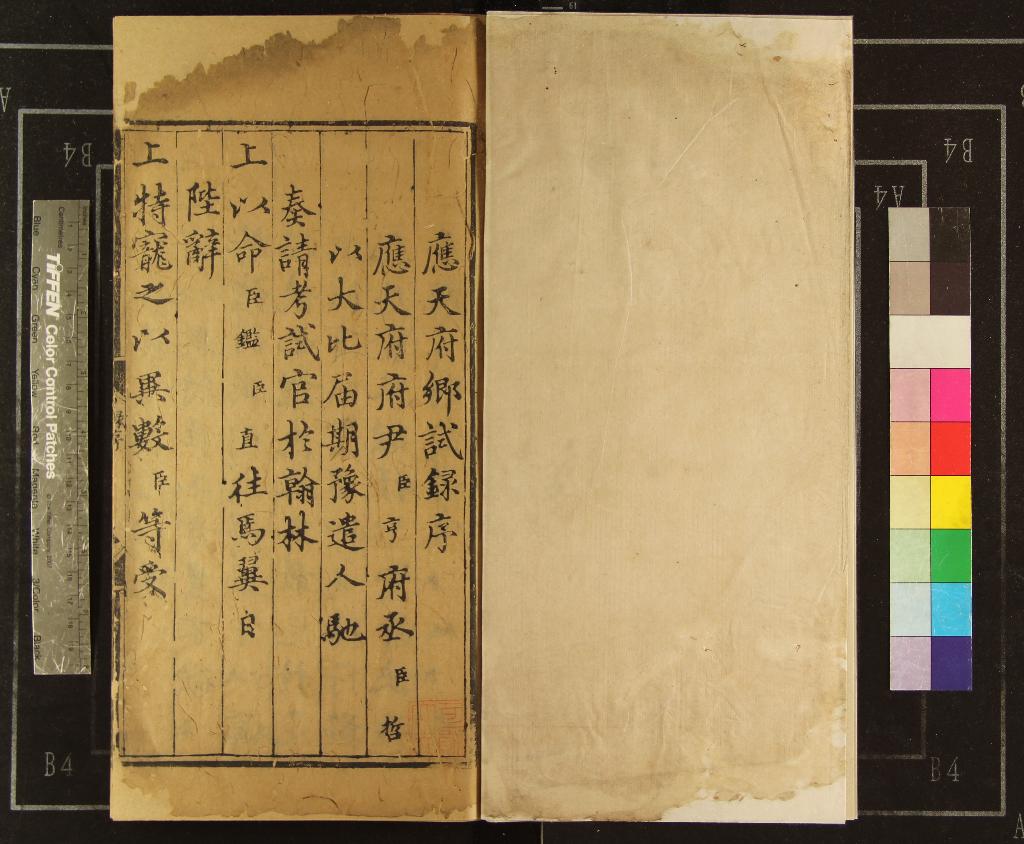 應天府鄉試録序
應天府府尹臣亨府丞臣哲
以大比届期豫遣人馳
奏請考試官於翰林
上以命臣鑑臣直往焉翼日
陛辭
上特寵之以異數臣等受
録序
B4
B4
B4
B4
A4
A
TIFFEN Color Control Patches
Centimetres
Blue
Cyan
Green
Yellow
Red
Magenta
White
3/Color
Black